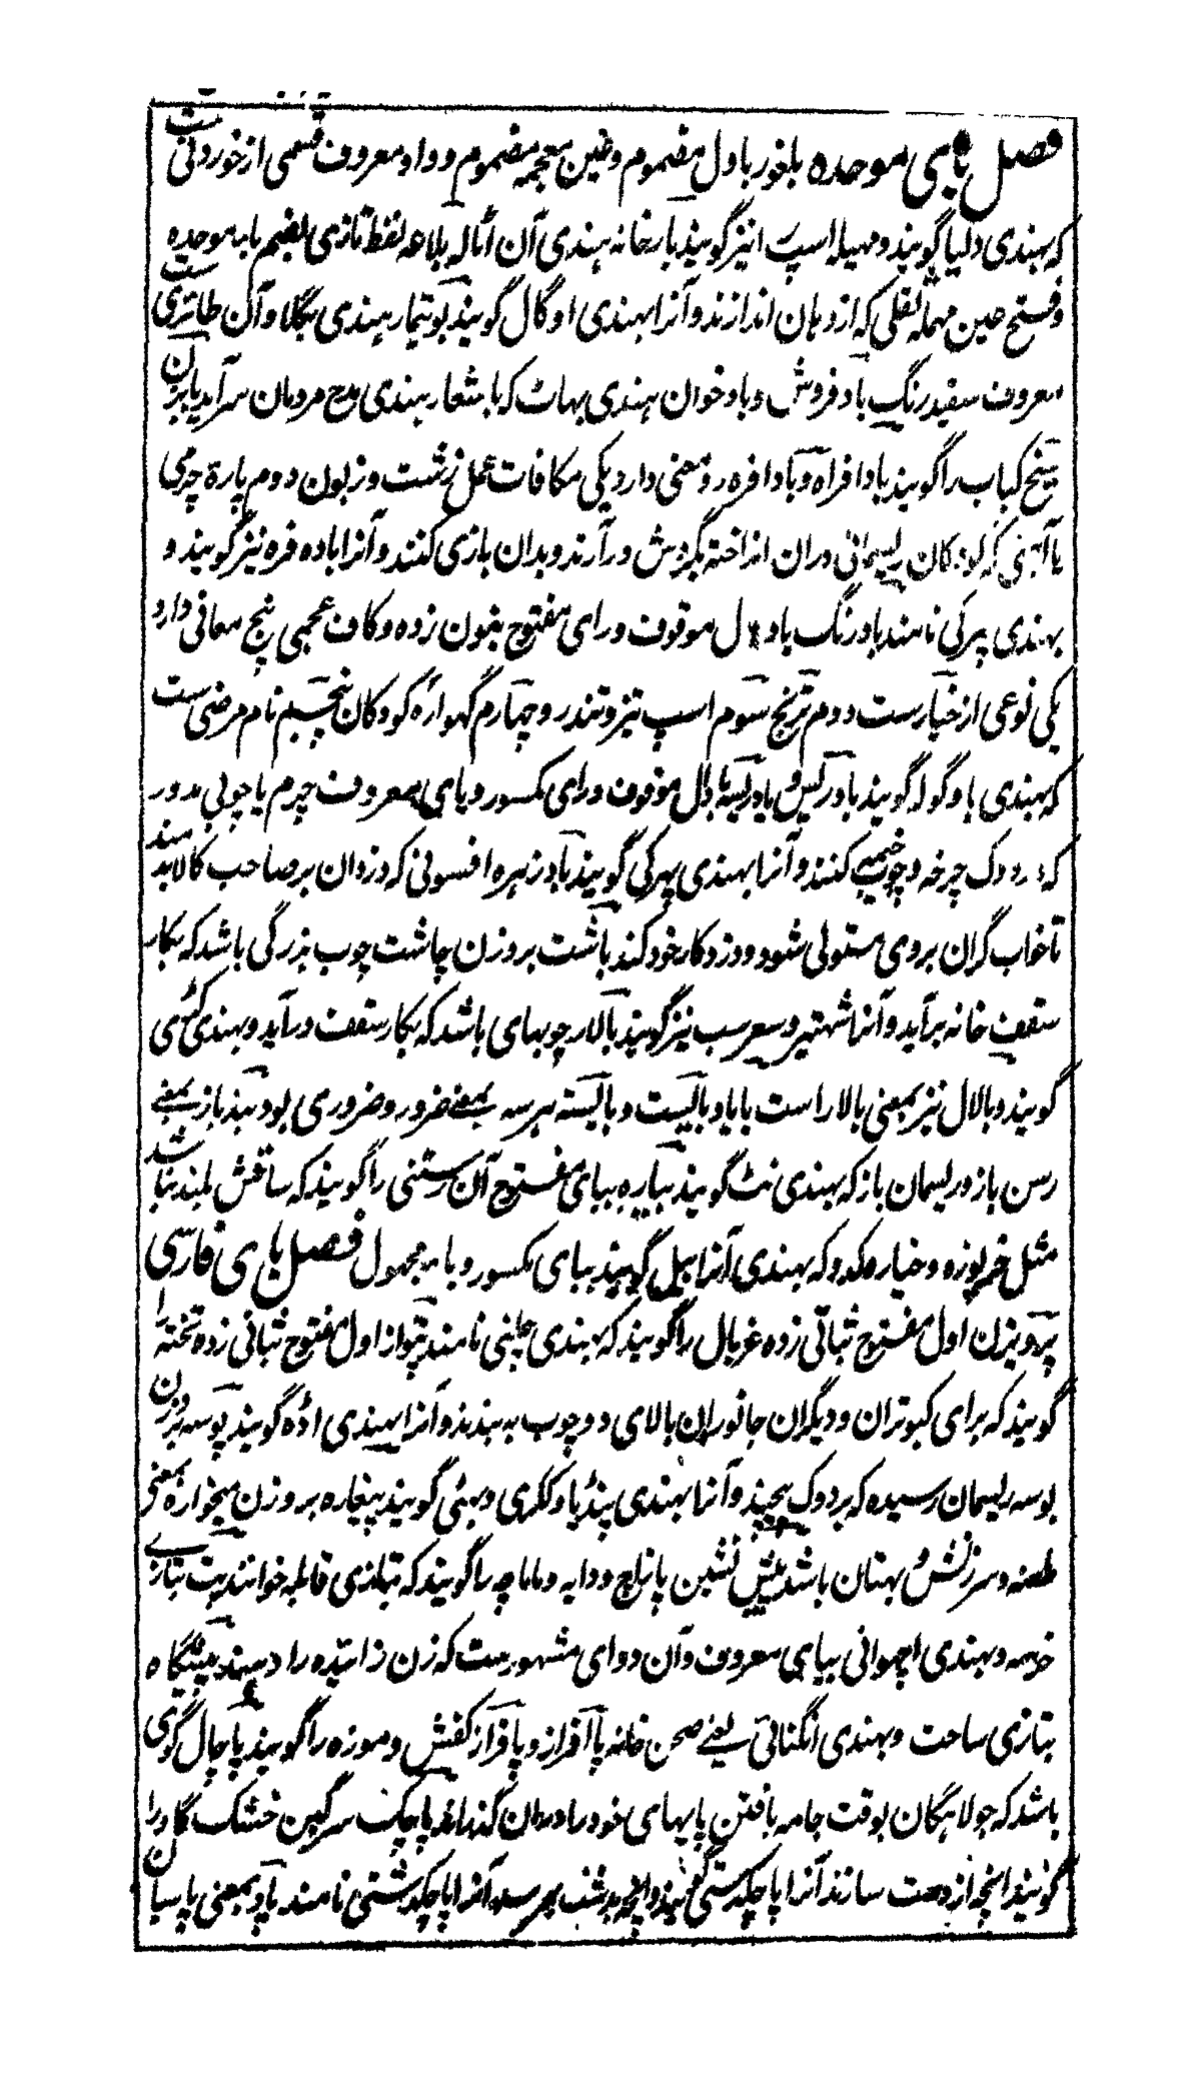 فصل بای موحده بلغور باول مضموم و غین معجمه مضموم و واو معروف قسمی از خوردنی ست
که بهندی دلیا گویند و مهیلہ اسپ را نیز گویند بارخانه بهندی آن اثاله بلاعه لفظ تازی بضم باء موحده
و فتح عین مهمله ثفلی که از دهان اندازند و آنرا بهندی اوگال گویند بوتیمار بهندی بگلا و آن طائری ست
معروف سفید رنگ بادفروش و بادخوان بهندی بهاٹ که باشعار بهندی مدح مردمان سرآید بابزن
سیخ کباب را گویند بادافراه و بادافره دو معنی دارد یکی مکافات عمل زشت و زبون دوم پارۀ چرمی
یا آهنی که کودکان ریسمانی دران انداخته بگردش درآرند و بدان بازی کنند و آنرا باده فره نیز گویند و
بهندی پهرکی نامند بادرنگ با دال موقوف و رای مفتوح بنون زده و کاف عجمی پنج معانی دارد
یکی نوعی از خیارست دوم ترنج سوم اسپ تیز و تندرو چهارم گهوارۀ کودکان پنجم نام مرضی ست
که بهندی باوگوله گویند بادریس و بادریسه با دال موقوف و رای مکسور و یای معروف چرم یا چوبی مدور
که در دوک چرخه و چوب خیمه کنند و آنرا بهندی پهرکی گویند بادزهره افسونی که دزدان بر صاحب کالا بدمند
تا خواب گران بروی مستولی شود و دزد کار خود کند باشت بروزن چاشت چوب بزرگی باشد که بکار
سقف خانه برآید و آنرا شهتیر و سرسب نیز گویند بالار چوبهای باشد که بکار سقف درآید و بهندی کڑی
گویند و بالال نیز بمعنی بالاراست بایا و بایست و بایسته هر سه بمعنی ضرور و ضروری بود بندباز بمعنی
رسن باز و ریسمان باز که بهندی نٹ گویند بیاره ببای مفتوح آن رستنی را گویند که ساقش بلند نباشد
مثل خرپوزه و خیار و کدو که بهندی آنرا بیل گویند ببای مکسور و یاء مجهول فصل بای فارسی
پرویزن اول مفتوح بثانی زده غربال را گویند که بهندی چلنی نامند پتواز اول مفتوح بثانی زده تخته را
گویند که برای کبوتران و دیگران جانوران بالای دو چوب به بندند و آنرا بهندی اڈه گویند پوسه بروزن
بوسه ریسمان رسیده که بر دوک پیچند و آنرا بهندی پنڈیا و ککڑی و بهئی گویند پیغاره بروزن میخواره بمعنی
طعنه و سرزنش و بهتان باشد پیش نشین پازاج و دایه و ماماچه را گویند که بتازی قابله خوانند پت بتازی
خرسه و بهندی اچهوانی بیای معروف و آن دوای مشهورست که زن زائیده را دهند پیشگاه
بتازی ساحت و بهندی انگنائی یعنی صحن خانه پاافزار و پافزار کفش و موزه را گویند پاچال گوی
باشد که جولاهگان بوقت جامه بافتن پایهای خود را دران گذارند پاچک سرگین خشک گاو را
گویند انچه از دست سازند آنرا پاچک دستی گویند و انچه بدشت بهم رسد آنرا پاچک دشتی نامند پاو بمعنی پاسبان